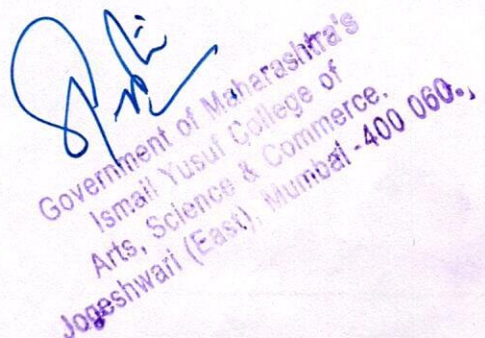 Government of Maharashtra's
Ismail Yusuf College of
Arts, Science & Commerce,
Jogeshwari (East), Mumbai -400 060.